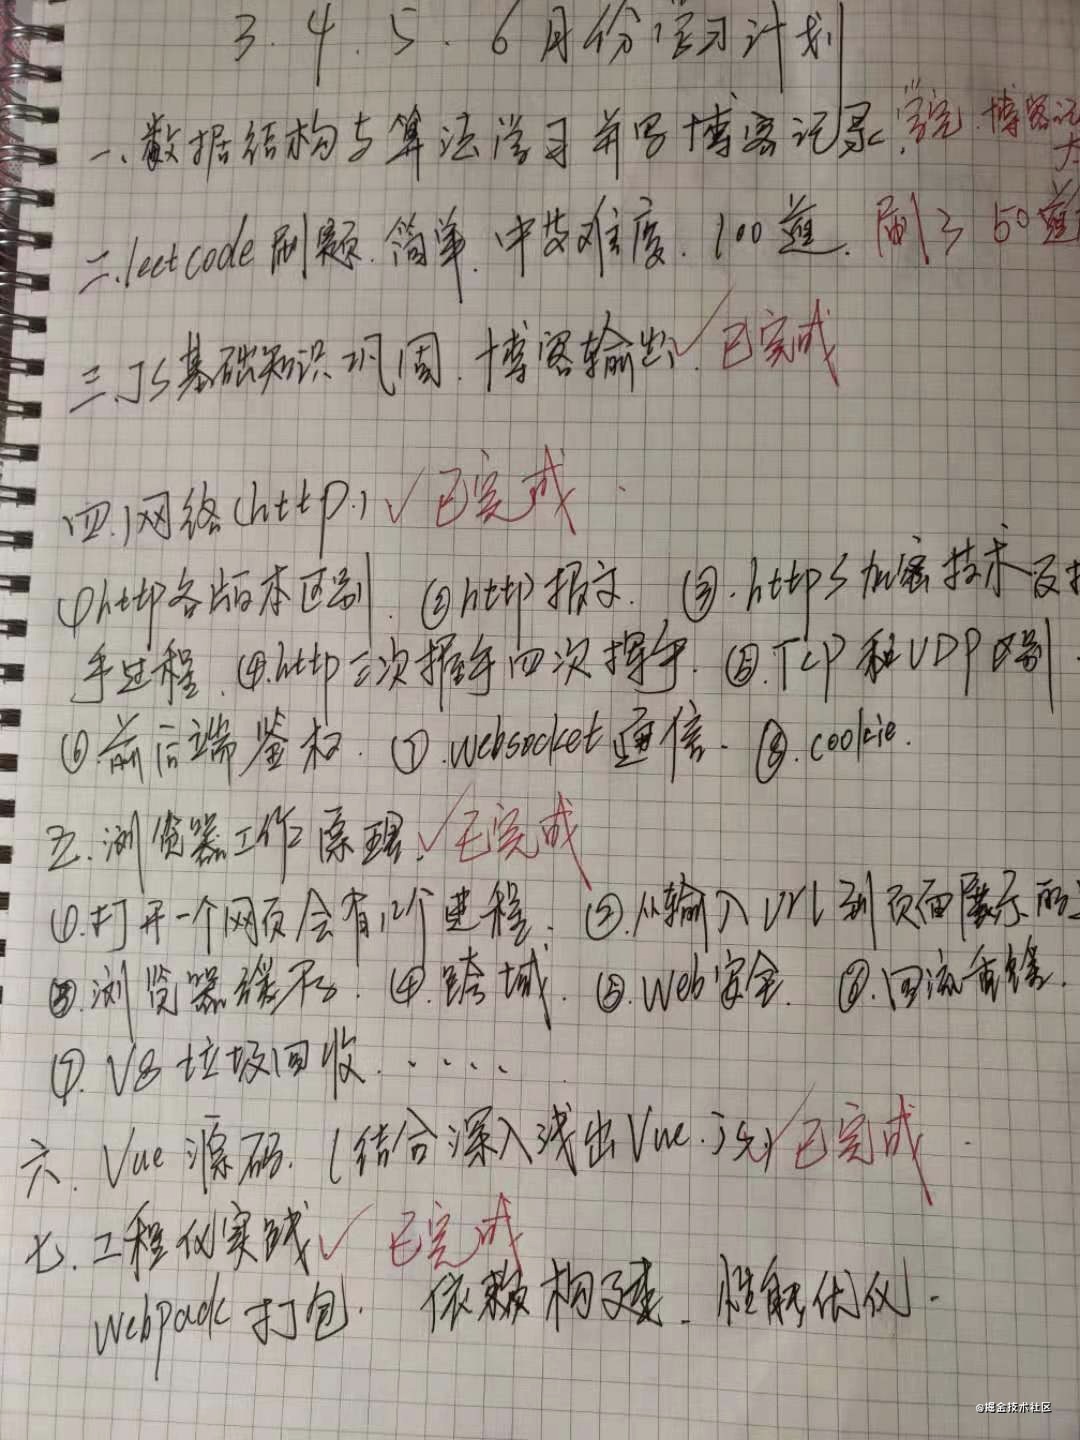 3.4.5.6月份学习计划
一、数据结构与算法学习并写博客记录.学完 博客记
二.leetcode刷题.简单.中等难度.100道.刷了50道
三.JS基础知识巩固.博客输出✓已完成
四.)网络(http.)✓已完成
①http各版本区别.②http报文.③.https加密技术及握
手过程.④.http三次握手四次挥手.⑤.TCP和UDP区别
⑥.前后端鉴权.⑦.websocket通信.⑧.cookie.
五.浏览器工作原理.✓已完成
①.打开一个网页会有几个进程.②.从输入url到页面展示的
③.浏览器缓存.④.跨域.⑤.Web安全.⑥.回流重绘.
⑦.V8垃圾回收......
六.Vue源码.(结合深入浅出Vue.js)✓已完成
七.工程化实践✓已完成
webpack打包. 依赖构建.性能优化.
@掘金技术社区